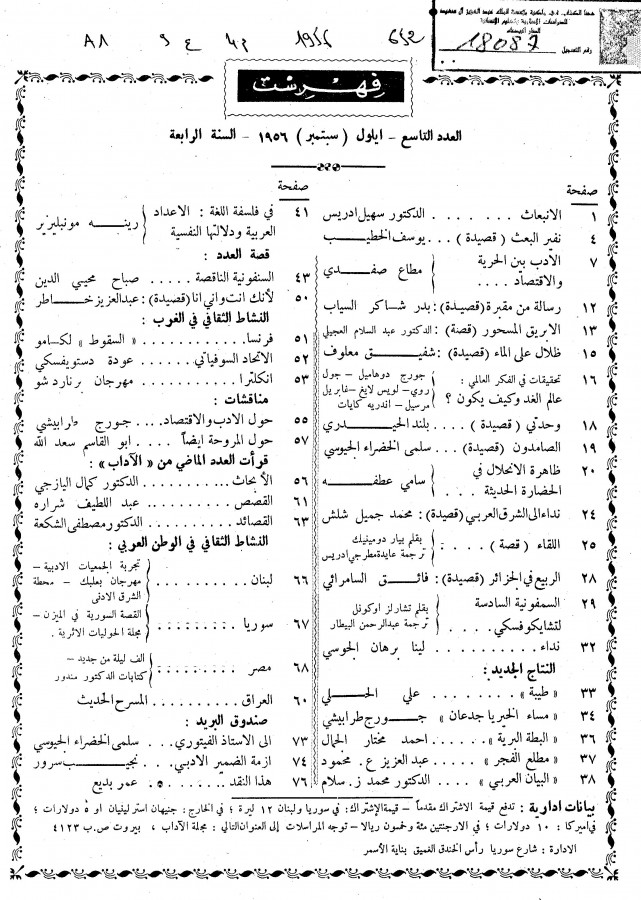 18087
رقم التسجيل
652
1956
م4
ع
9
A8
فهرست
العدد التاسع - ايلول ( سبتمبر ) ١٩٥٦ - السنة الرابعة
صفحة
١ الانبعاث . . . . . . . الدكتور سهيل ادريس
٤ نفير البعث ( قصيدة ) . . . يوسف الخطيب
٧ الأدب بين الحرية والاقتصاد . . . . مطاع صفدي
١٢ رسالة من مقبرة (قصيدة): بدر شاكر السياب
١٣ الابريق المسحور (قصة): الدكتور عبد السلام العجيلي
١٥ ظلال على الماء (قصيدة): شفيق معلوف
١٦ تحقيقات في الفكر العالمي : عالم الغد وكيف يكون ؟ جورج دوهاميل - جول روي - لويس لايغ - غابريل مرسيل - اندريه كايات
١٨ وحدتي ( قصيدة ) . . . . بلند الحيدري
١٩ الصامدون (قصيدة) . . سلمى الخضراء الجيوسي
٢٠ ظاهرة الانحلال في الحضارة الحديثة . . . سامي عطفه
٢٤ نداء الى الشرق العربي (قصيدة): محمد جميل شلش
٢٥ اللقاء ( قصة ) . . . : بقلم بيار دومينيك ترجمة عايدة مطرجي ادريس
٢٨ الربيع في الجزائر (قصيدة): فائق السامرائي
٢٩ السمفونية السادسة لتشايكوفسكي . . . . بقلم تشارلز اوكونل ترجمة عبدالرحمن البيطار
٣٢ نداء . . . . . . . . لينا برهان الجوسي
النتاج الجديد :
٣٣ « طيبة » . . . . . . . علي الحلي
٣٤ « مساء الخير يا جدعان » جورج طرابيشي
٣٦ « البطة البرية » . . . . احمد مختار الجمال
٣٧ « مطلع الفجر » . . . عبد العزيز ع. محمود
٣٨ « البيان العربي » . . . الدكتور محمد ز. سلام
صفحة
٤١ في فلسفة اللغة : الاعداد العربية ودلالتها النفسية رينه مونبليزير
قصة العدد :
٤٣ السنفونية الناقصة . . صباح محيي الدين
٥٠ لأنك انت واني انا (قصيدة): عبدالعزيز خاطر
النشاط الثقافي في الغرب :
٥١ فرنسا . . . . . . . . . . « السقوط » لكامو
٥٢ الاتحاد السوفياتي . . . عودة دستويفسكي
٥٣ انكلترا . . . . . . . مهرجان برنارد شو
مناقشات :
٥٥ حول الادب والاقتصاد . . . جورج طرابيشي
٥٧ حول المروحة ايضاً . . ابو القاسم سعد الله
قرأت العدد الماضي من « الآداب » :
٥٦ الأبحاث . . . . . . . . الدكتور كمال اليازجي
٦١ القصص . . . . . . . عبد اللطيف شراره
٦٣ القصائد . . . . . الدكتور مصطفى الشكعة
النشاط الثقافي في الوطن العربي :
٦٦ لبنان . . . . . . . . . تجربة الجمعيات الادبية - مهرجان بعلبك - محطة الشرق الادنى
٦٧ سوريا . . . . . . . . القصة السورية في الميزن - مجلة الحوليات الاثرية .
٦٨ مصر . . . . . . . . . الف ليلة من جديد - كتابات الدكتور مندور
٦٠ العراق . . . . . . . . . . المسرح الحديث
صندوق البريد :
٧٣ الى الاستاذ الفيتوري . . . سلمى الخضراء الجيوسي
٧٤ ازمة الضمير الادبي . . . نجيب سرور
٧٦ هذا النقد . . . . . . . . عمر بديع
بيانات ادارية : تدفع قيمة الاشتراك مقدماً - قيمة الإشتراك: في سوريا ولبنان ١٢ ليرة ؛ في الخارج: جنيهان استرلينيان او ٥ دولارات ؛
في اميركا : ١٠ دولارات ؛ في الارجنتين مئة وخمسون ريالا - توجه المراسلات إلى العنوان التالي : مجلة الآداب ، بيروت ص.ب ٤١٢٣
الادارة : شارع سوريا رأس الخندق الغميق بناية الأسمر